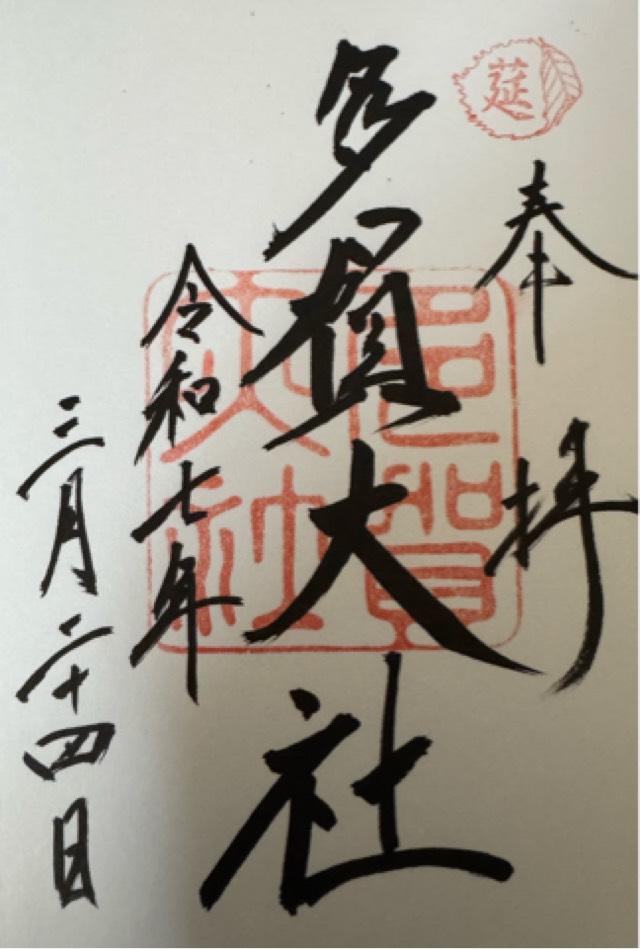 莚
奉拝
多賀大社
多賀大社
令和七年
三月二十四日